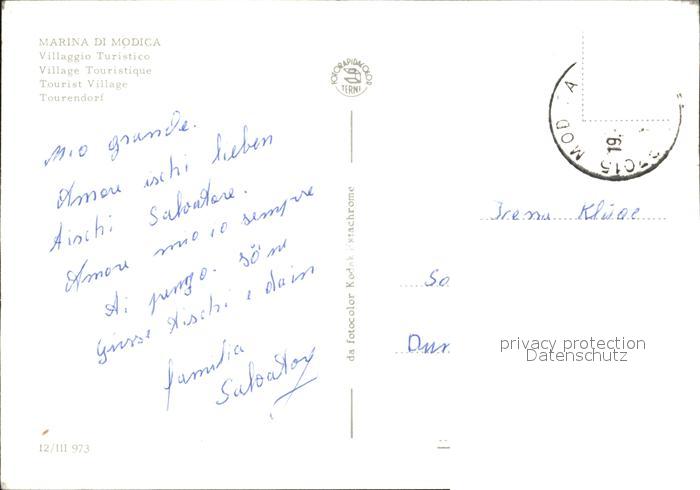 MARINA DI MODICA
Villaggio Turistico
Village Touristique
Tourist Village
Tourendorf
FOTORAPIDACOLOR
TERNI
Mio grande.
Amore ischi lieben
tischi Salvatore.
Amore mio io sempre
ti penzo. sö ni
Grusse tischi e dain
familia
Salvatore
12/III 973
da fotocolor Kodak Ektachrome
MOD A
19.
97015
Irena
So
Dun
privacy protection
Datenschutz